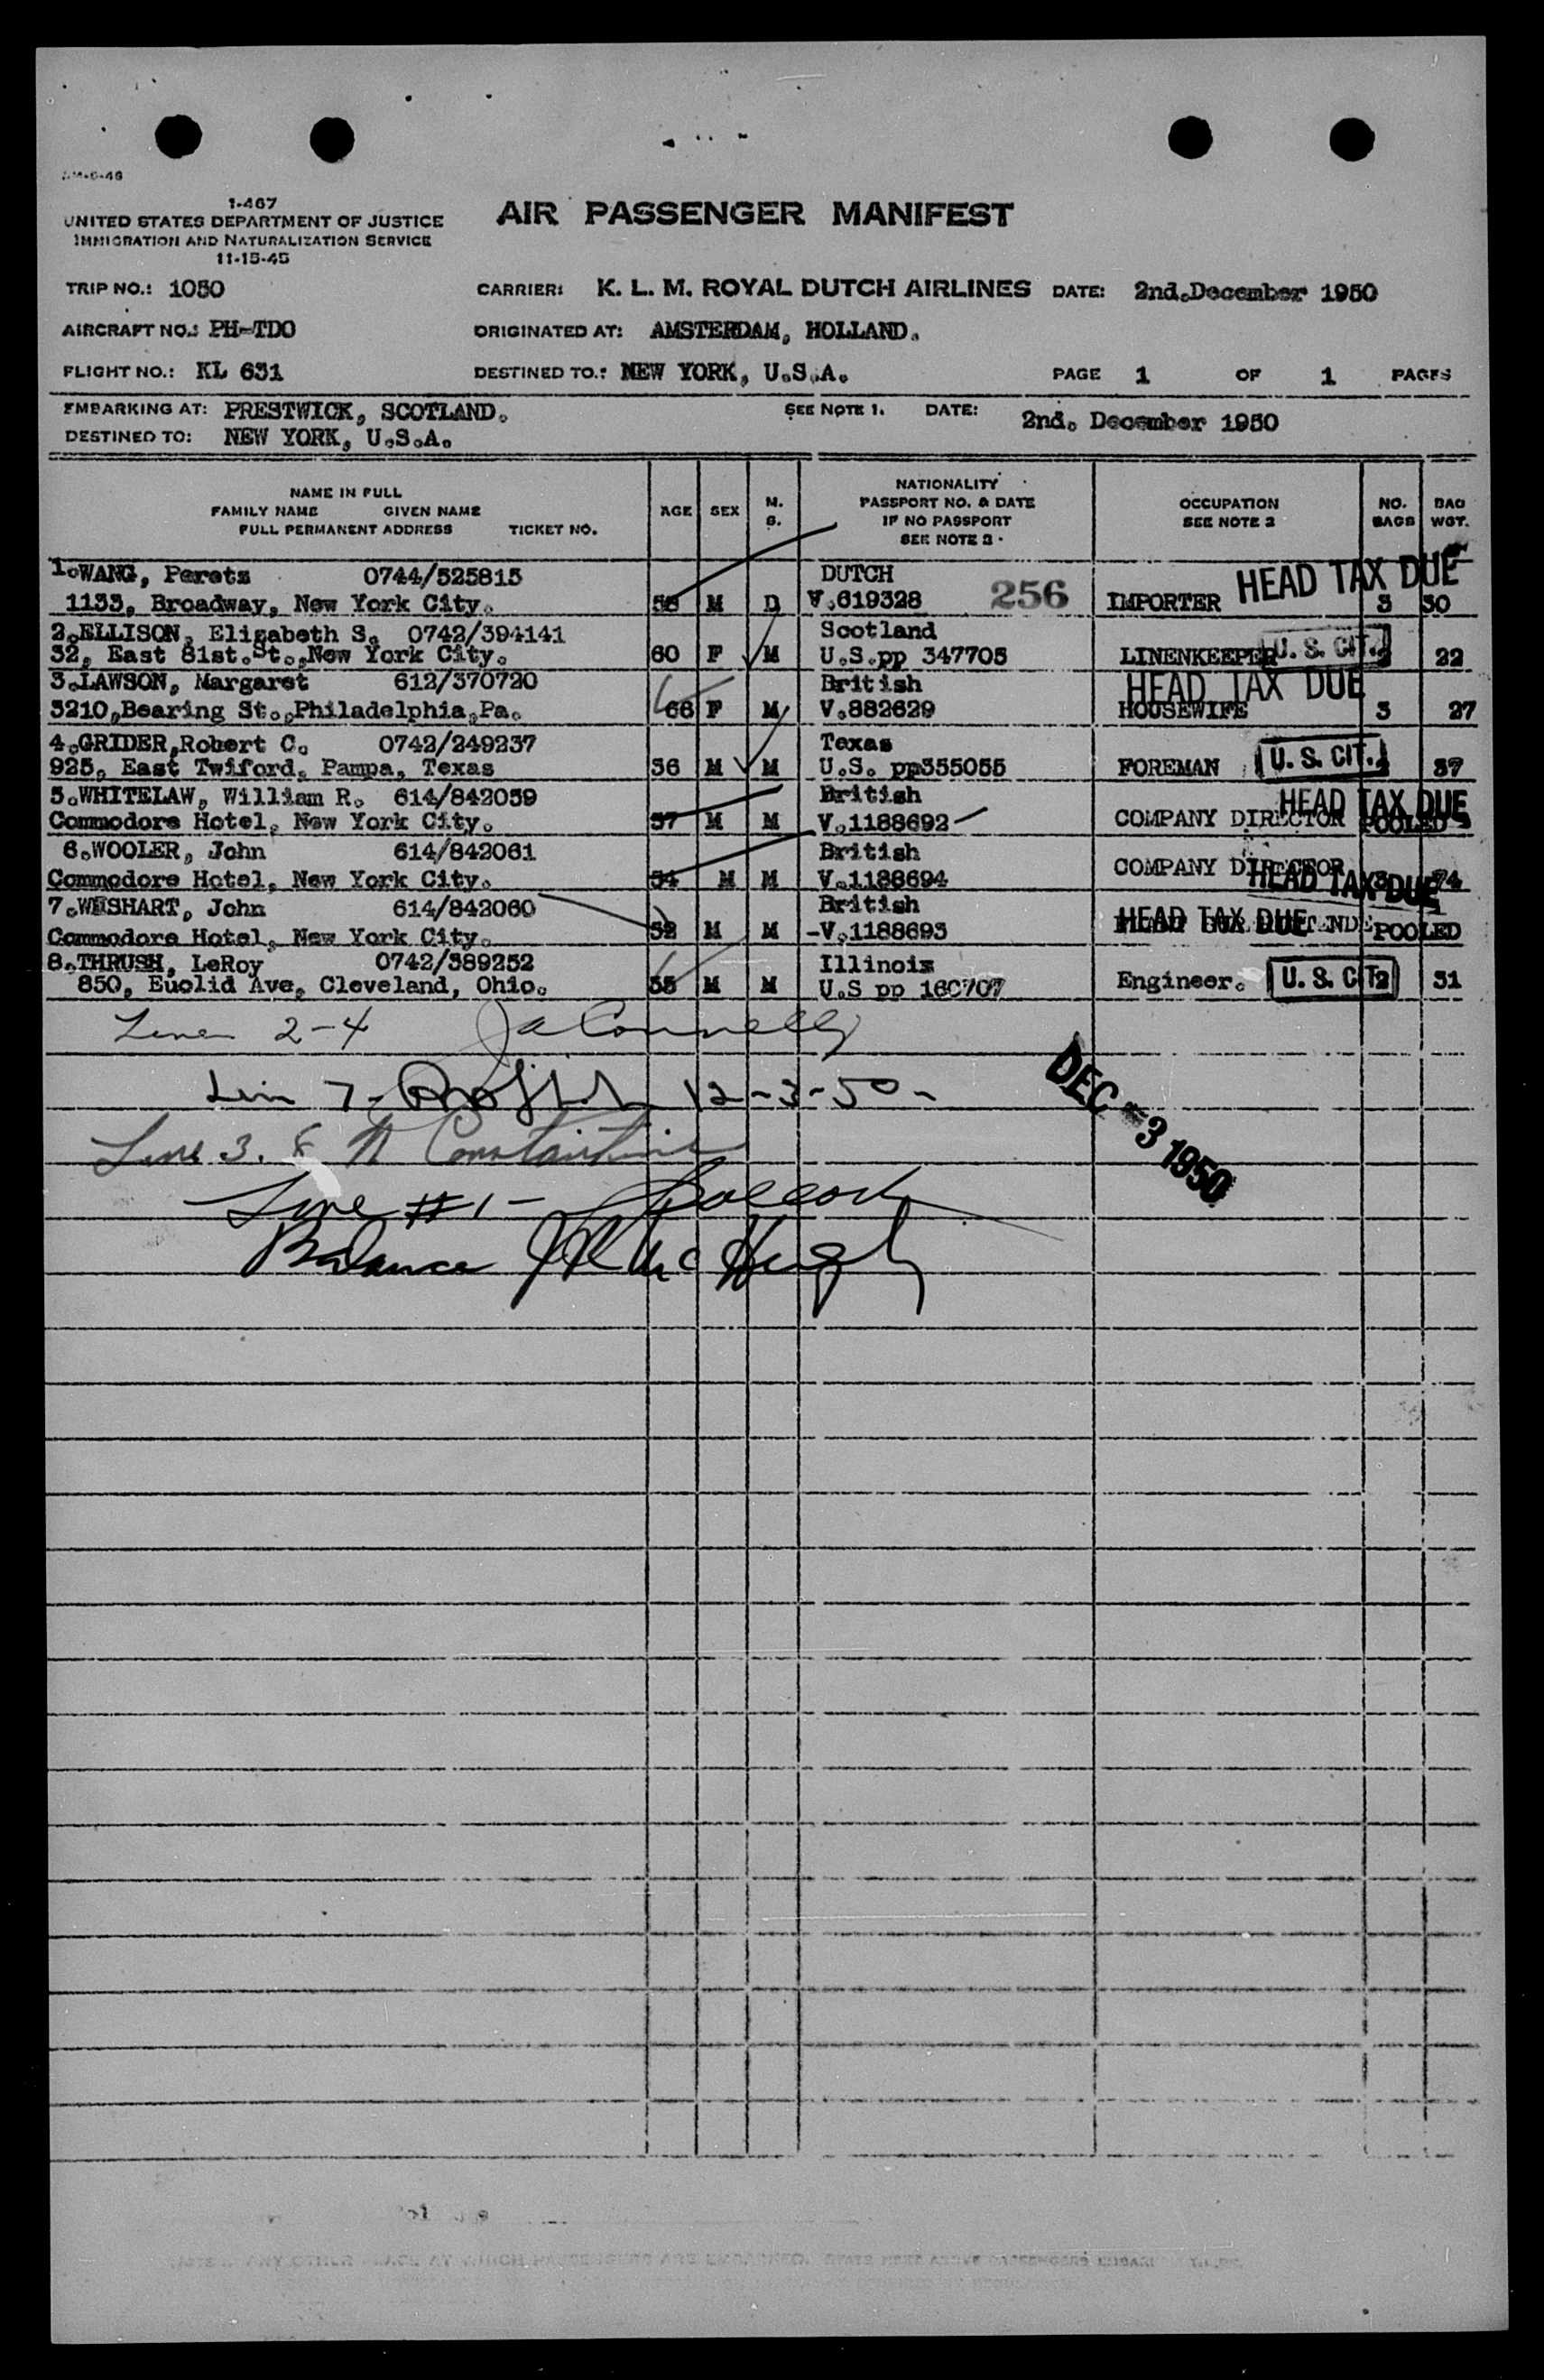 1-467
UNITED STATES DEPARTMENT OF JUSTICE
IMMIGRATION AND NATURALIZATION SERVICE
11-15-45
AIR PASSENGER MANIFEST
TRIP NO.: 1050 CARRIER: K. L. M. ROYAL DUTCH AIRLINES DATE: 2nd.December 1950
AIRCRAFT NO.: PH-TDO ORIGINATED AT: AMSTERDAM, HOLLAND.
FLIGHT NO.: KL 631 DESTINED TO.: NEW YORK, U.S.A. PAGE 1 OF 1 PAGES
EMBARKING AT: PRESTWICK, SCOTLAND. SEE NOTE 1. DATE: 2nd. December 1950
DESTINED TO: NEW YORK, U.S.A.
NAME IN FULL
FAMILY NAME GIVEN NAME
FULL PERMANENT ADDRESS TICKET NO. AGE SEX M. S. NATIONALITY PASSPORT NO. & DATE IF NO PASSPORT SEE NOTE 2 OCCUPATION SEE NOTE 2 NO. BAGS BAG WGT.
1.WANG, Perets 0744/525815 DUTCH HEAD TAX DUE
1133, Broadway, New York City. M D V.619328 256 IMPORTER 3 30
2.ELLISON, Elisabeth S. 0742/394141 Scotland
32, East 81st.St.,New York City. 60 F M U.S.pp 347705 LINENKEEPER U. S. CIT. 22
3.LAWSON, Margaret 612/370720 British HEAD TAX DUE
3210,Bearing St.,Philadelphia,Pa. 66 F M V.882629 HOUSEWIFE 3 27
4.GRIDER,Robert C. 0742/249237 Texas
925, East Twiford, Pampa, Texas 36 M M U.S. pp355055 FOREMAN U. S. CIT. 37
5.WHITELAW, William R. 614/842059 British HEAD TAX DUE
Commodore Hotel, New York City. 37 M M V.1188692 COMPANY DIRECTOR POOLED
6.WOOLER, John 614/842061 British
Commodore Hotel, New York City. 54 M M V.1188694 COMPANY DIRECTOR HEAD TAX DUE 3 74
7.WISHART, John 614/842060 British
Commodore Hotel, New York City. 52 M M -V.1188693 HEAD TAX DUE POOLED
8.THRUSH, LeRoy 0742/389252 Illinois
850, Euclid Ave, Cleveland, Ohio. 35 M M U.S pp 160707 Engineer. U. S. CIT 2 31
Lines 2-4 JA Connelly
Line 7- 12-3-50-
DEC -3 1950
Line 3. Constantine
Line #1-
Balance JR McHugh